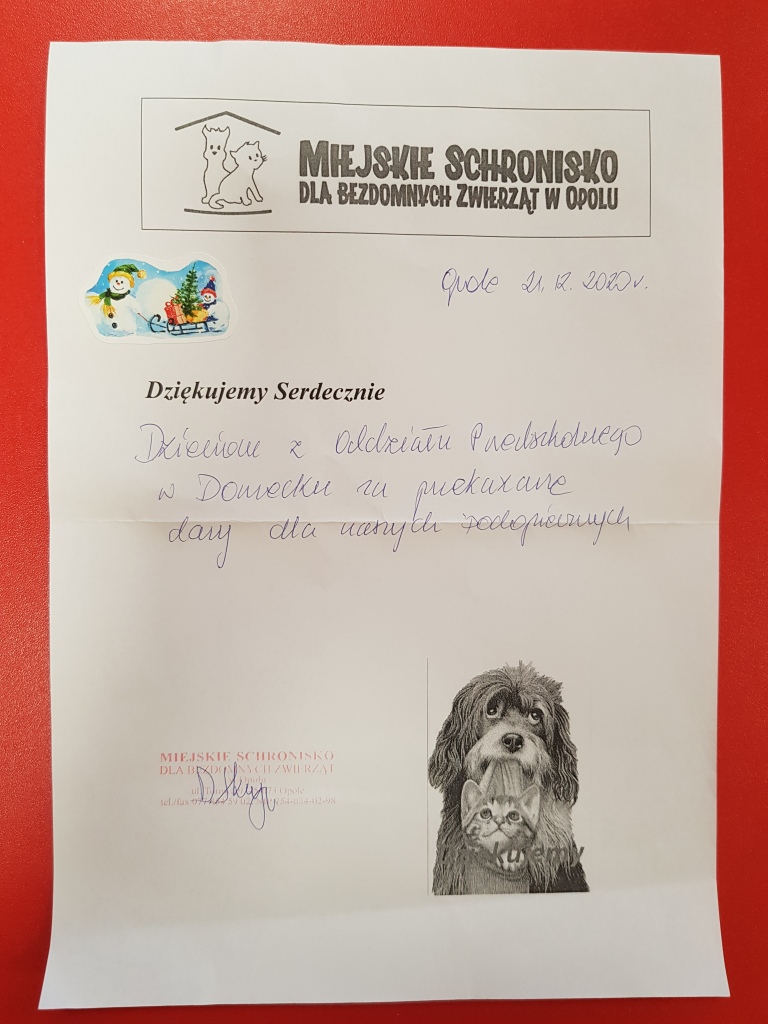 MIEJSKIE SCHRONISKO
DLA BEZDOMNYCH ZWIERZĄT W OPOLU
Opole 21.12.2020r.
Dziękujemy Serdecznie
Dzieciom z Oddziału Przedszkolnego
w Domecku za przekazane
dary dla naszych podopiecznych
MIEJSKIE SCHRONISKO
DLA BEZDOMNYCH ZWIERZĄT
Opole
tel./fax